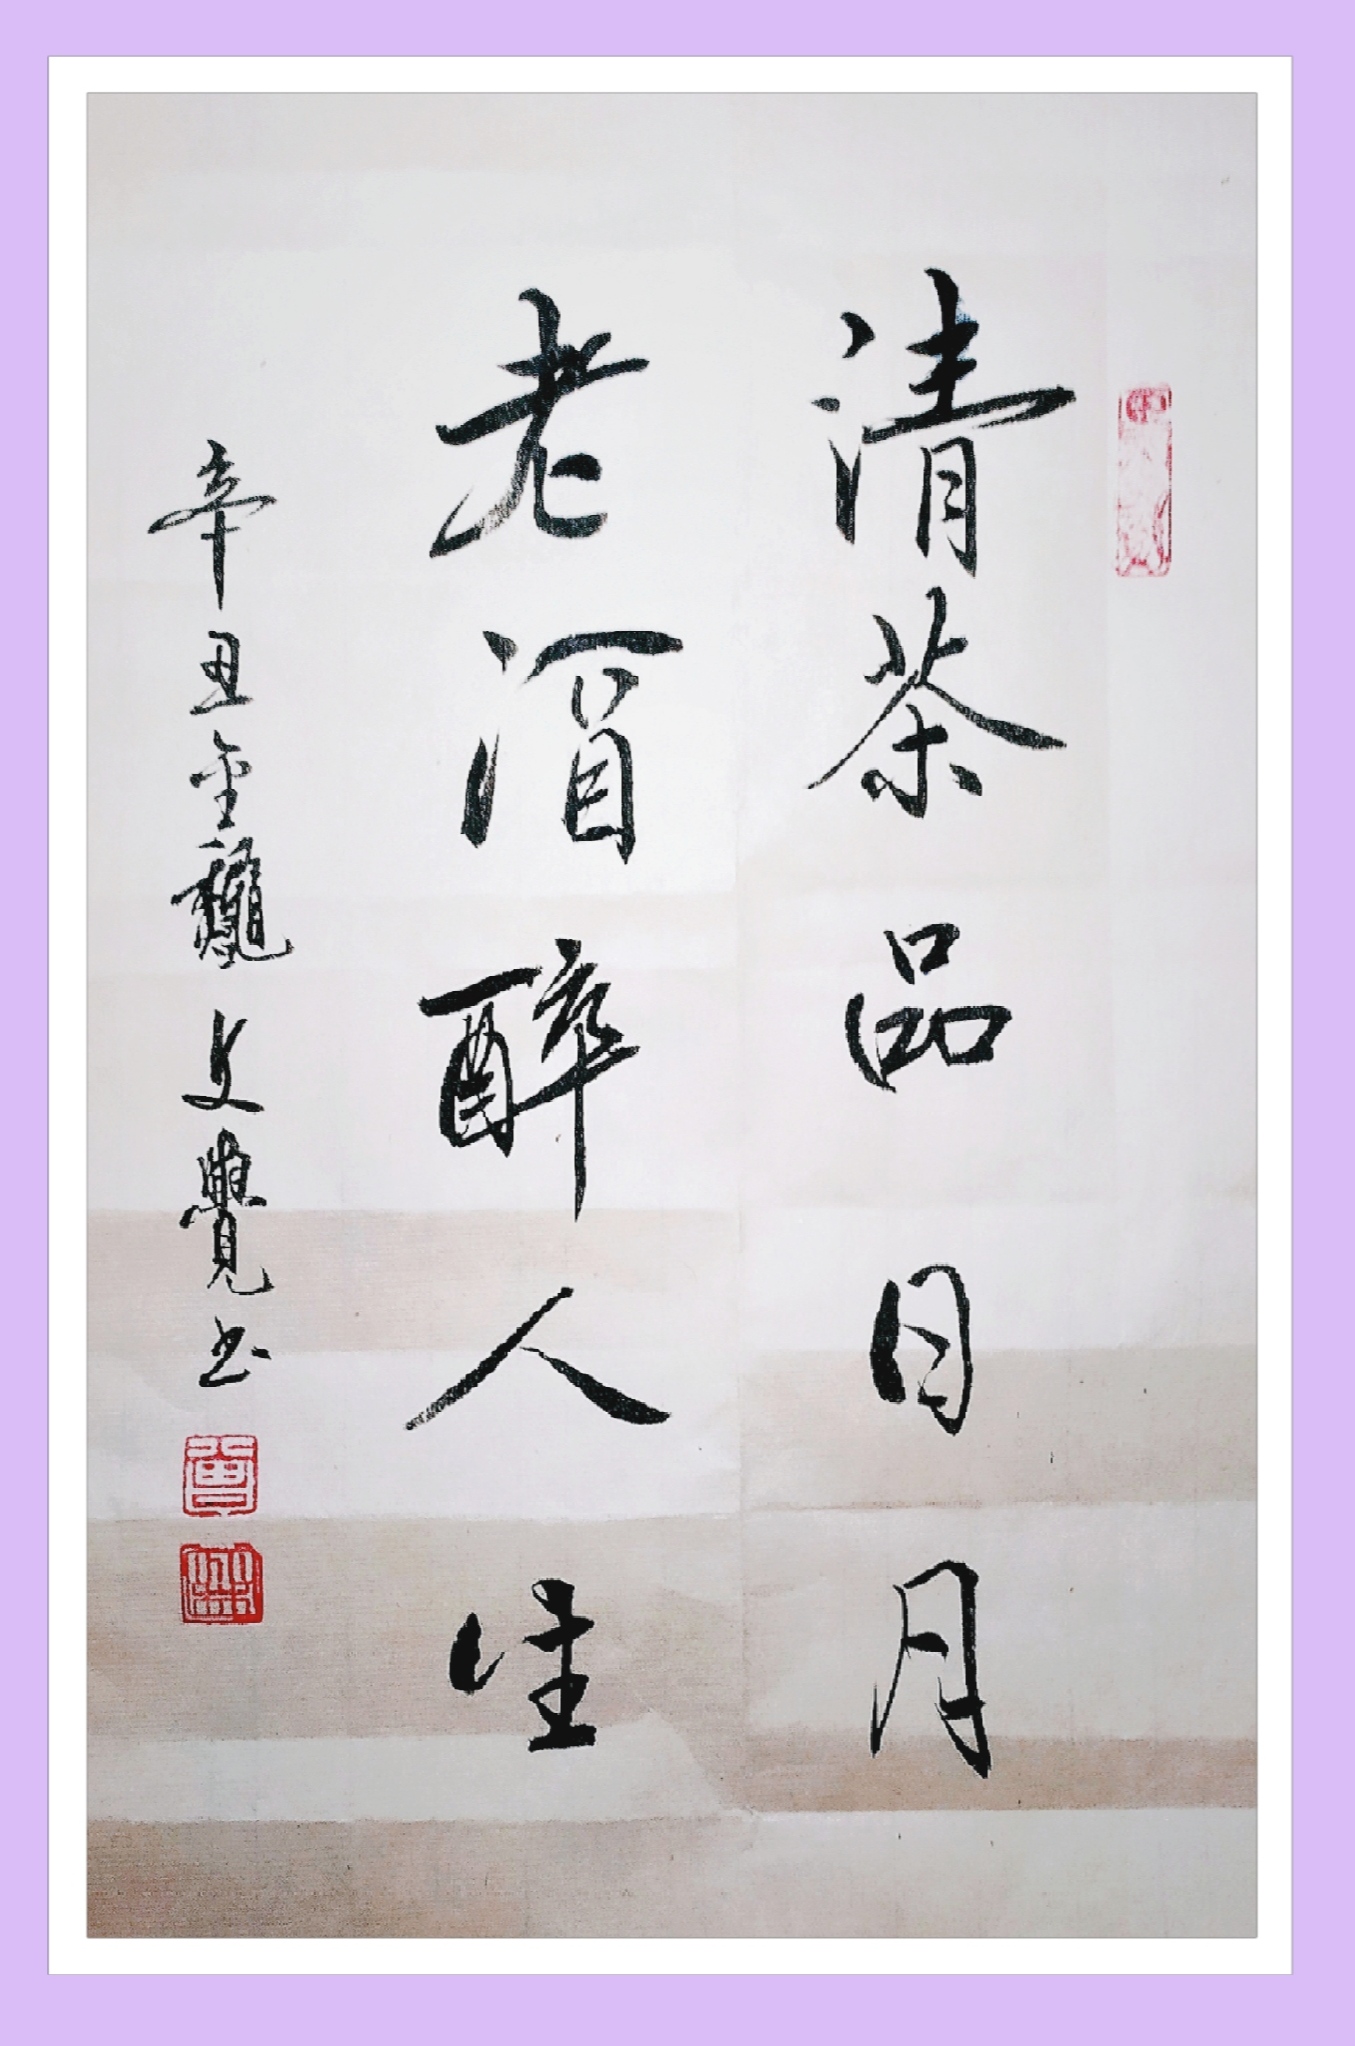 清茶品日月
老酒醉人生
辛丑金龝文覺书